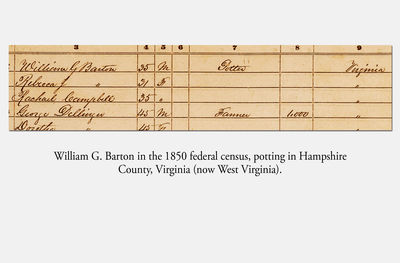 3 4 5 6 7 8 9
William G Barton 35 M Potter Virginia
Rebecca J " 31 F "
Rachael Campbell 35 " "
George Dellinger 45 M Farmer 1,000 "
Dorothy " 45 F "
William G. Barton in the 1850 federal census, potting in Hampshire
County, Virginia (now West Virginia).